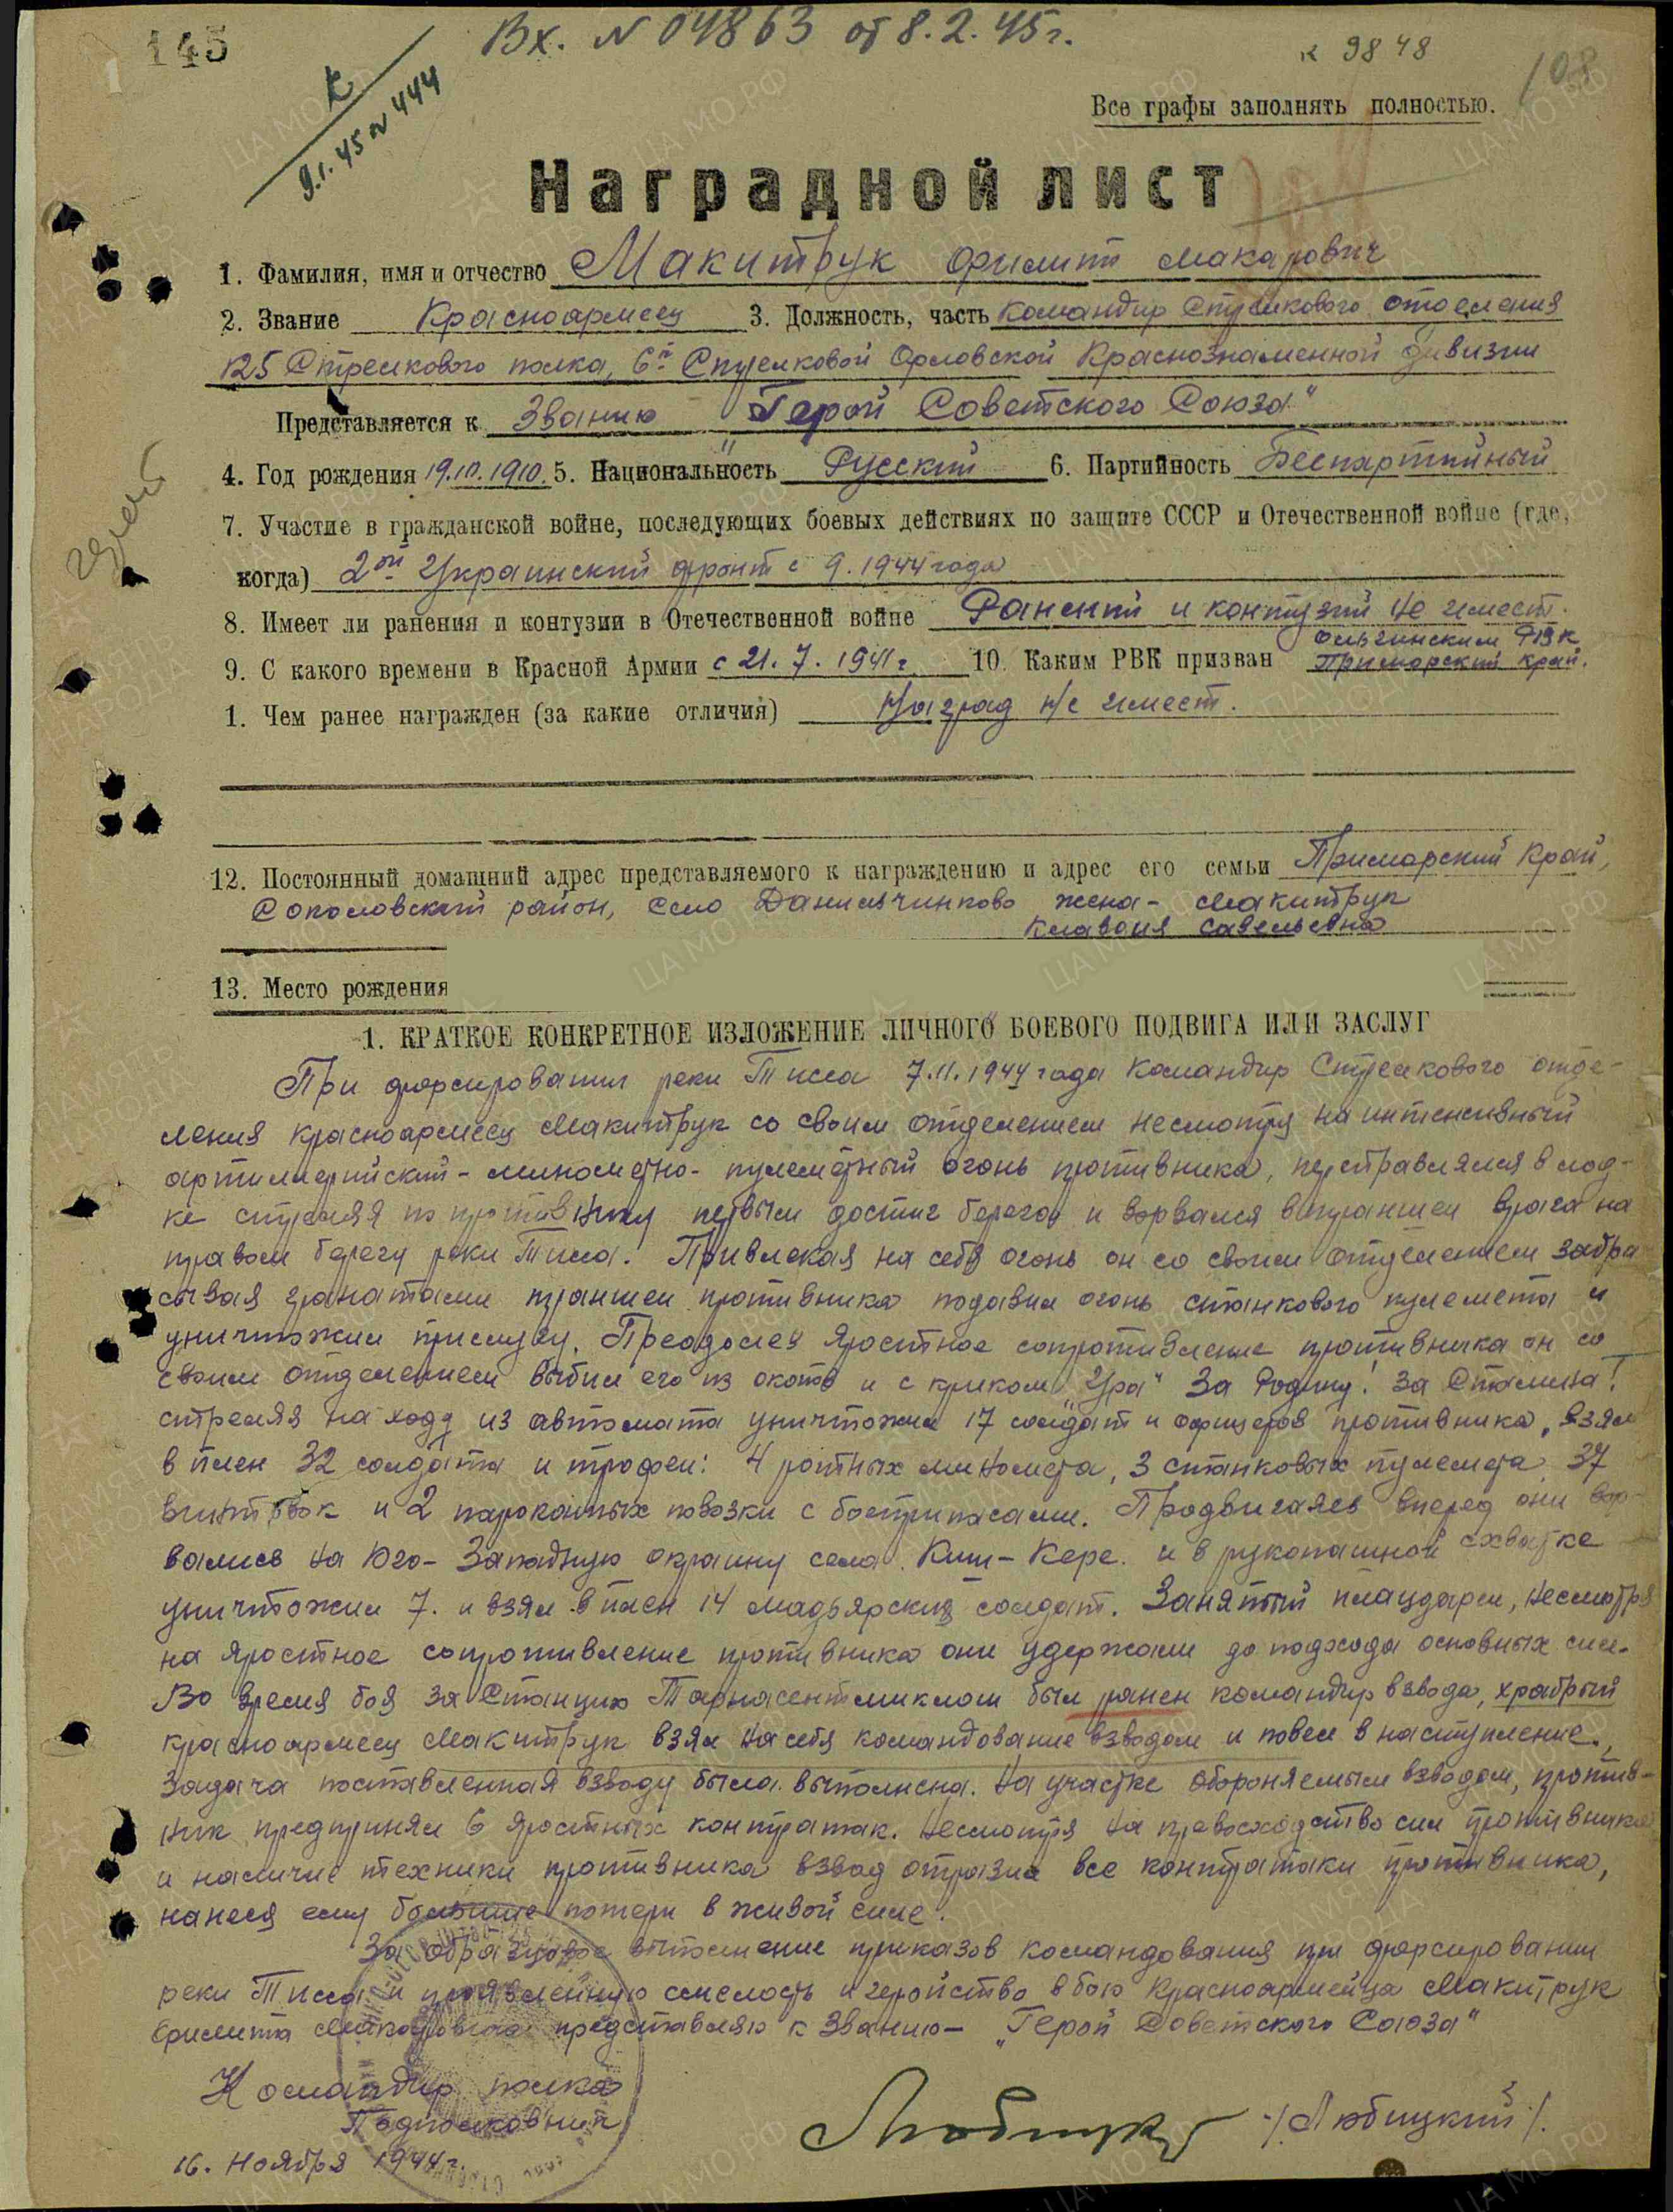 145
Вх. N 04863 от 8.2.45г.
к 9848
108
9.1.45 N 444
Все графы заполнять полностью.
Наградной лист
1. Фамилия, имя и отчество Макитрук Филипп Макарович
2. Звание Красноармеец 3. Должность, часть Командир Стрелкового отделения
125 Стрелкового полка, 6й Стрелковой Орловской Краснознаменной дивизии
Представляется к Званию „Герой Советского Союза"
4. Год рождения 19.10.1910. 5. Национальность Русский 6. Партийность Беспартийный
7. Участие в гражданской войне, последующих боевых действиях по защите СССР и Отечественной войне (где,
когда) 2ой Украинский фронт с 9.1944 года
8. Имеет ли ранения и контузии в Отечественной войне Ранений и контузий не имеет.
9. С какого времени в Красной Армии с 21.7.1941г 10. Каким РВК призван Ольгинским РВК
Приморский край.
1. Чем ранее награжден (за какие отличия) Наград не имеет.
12. Постоянный домашний адрес представляемого к награждению и адрес его семьи Приморский Край,
Соколовский район, село Данильченково жена - Макитрук
Клавдия Савельевна
13. Место рождения
1. КРАТКОЕ КОНКРЕТНОЕ ИЗЛОЖЕНИЕ ЛИЧНОГО БОЕВОГО ПОДВИГА ИЛИ ЗАСЛУГ
При форсировании реки Тисса 7.11.1944 года Командир Стрелкового отде-
ления красноармеец Макитрук со своим отделением несмотря на интенсивный
артиллерийский-минометно-пулеметный огонь противника, переправлялся в лод-
ке стреляя по противнику первым достиг берега и ворвался в траншеи врага на
правом берегу реки Тисса. Привлекая на себя огонь он со своим отделением забра
сывая гранатами траншеи противника подавил огонь станкового пулемета и
уничтожил прислугу. Преодолев яростное сопротивление противника он со
своим отделением выбил его из окопов и с криком „Ура" За Родину! За Сталина!
стреляя на ходу из автомата уничтожил 17 солдат и офицеров противника, взял
в плен 32 солдата и трофеи: 4 ротных миномета, 3 станковых пулемета, 37
винтовок и 2 пароконных повозки с боеприпасами. Продвигаясь вперед они вор-
вались на Юго-Западную окраину села Киш-Кере. и в рукопашной схватке
уничтожил 7. и взял в плен 14 мадьярских солдат. Занятый плацдарм, несмотря
на яростное сопротивление противника они удержали до подхода основных сил.
Во время боя за Станцию Тарнасентмиклош был ранен командир взвода, храбрый
красноармеец Макитрук взял на себя командование взводом и повел в наступление.
Задача поставленная взводу была выполнена. На участке обороняемым взводом, против-
ник предпринял 6 яростных контратак. Несмотря на превосходство сил противника
и наличие техники противника взвод отразил все контратаки противника,
нанеся ему большие потери в живой силе.
За образцовое выполнение приказов командования при форсировании
реки Тисса и проявленную смелость и геройство в бою Красноармейца Макитрук
Филиппа Макаровича представляю к Званию - „Герой Советского Союза"
Командир полка
Подполковник
/Любицкий/.
16. Ноября 1944г.